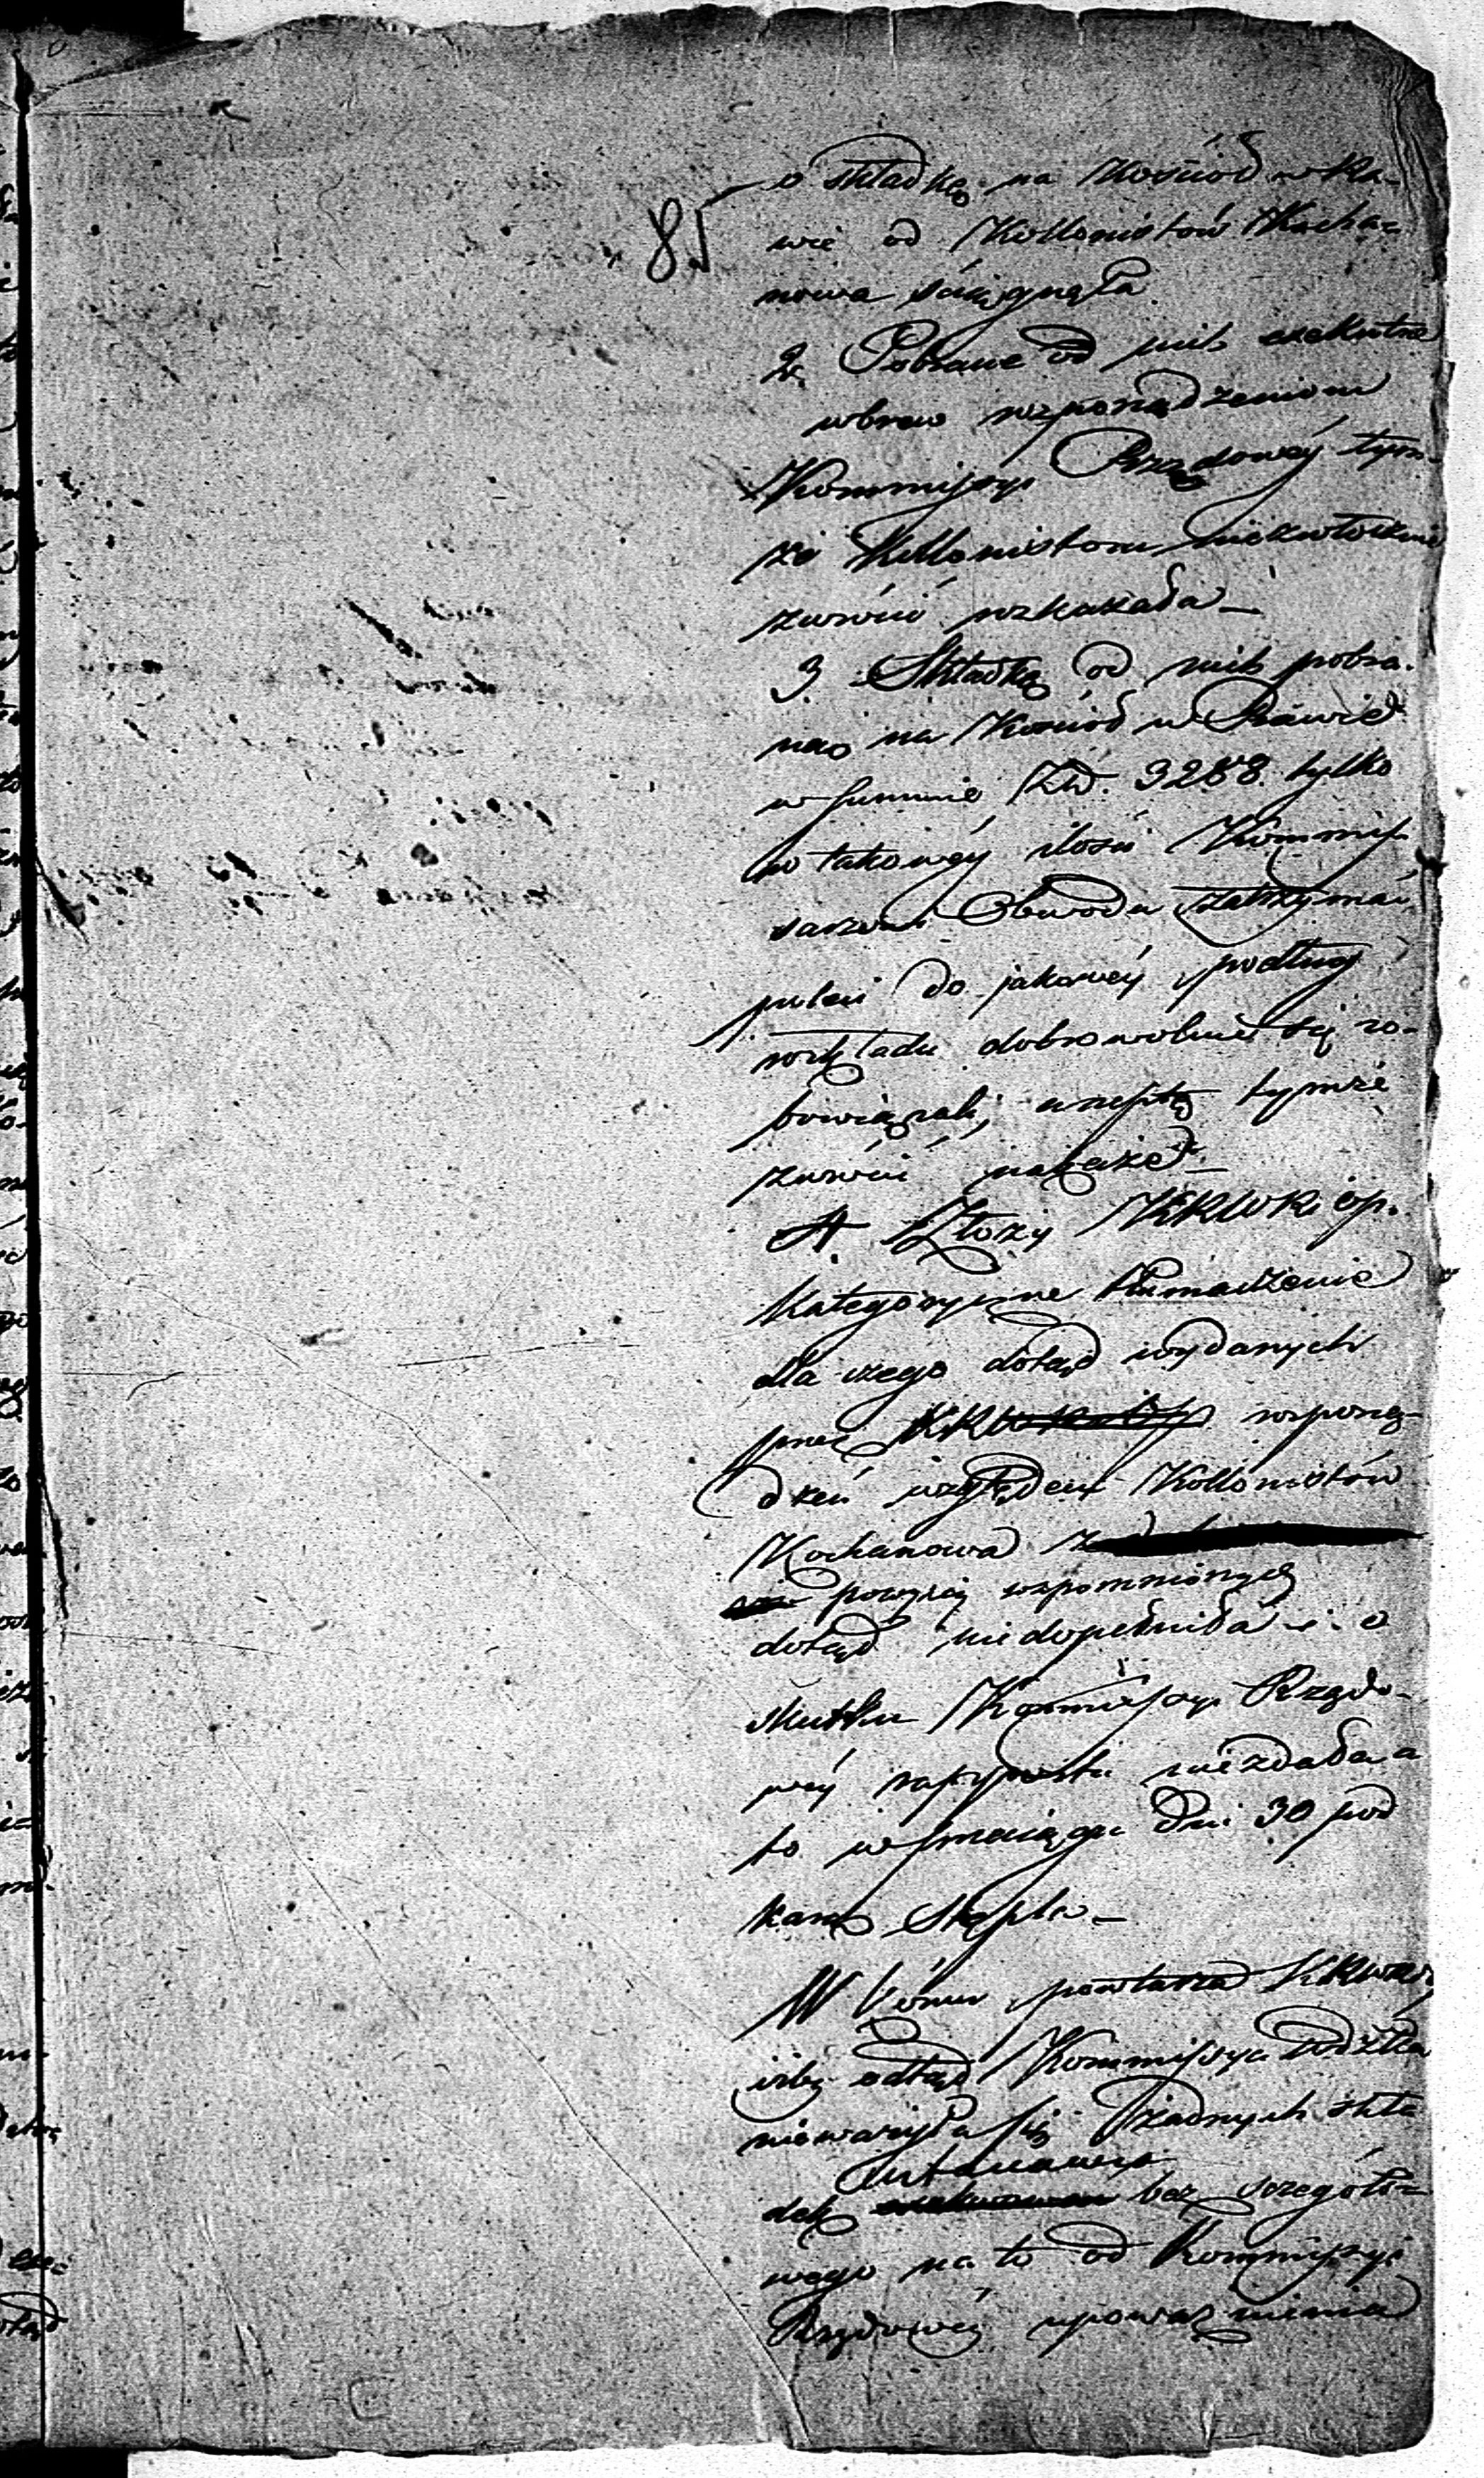 o składkę na Kościoł w Ra-
wie od Kollonistów Kocha-
nowa ściągnęła
81
2. Pobrane od nich exekutne
wbrew rozporządzeniom
Kommissyi Rządowéy tym-
że Kollonistom niezwłocznie
zwrócić rozkazała –
3 Składkę od nich pobra-
ną na Kościoł w Rawie
w summie Złł. 3288. tylko
w takowéy ilości Kommis-
sarzowi Obwodu zatrzymać
poleci do jakowéy podług
rozkładu dobrowolnie się zo-
bowiązali, resztę tymże
zwrócić nakaże –
4. Złoży KRWR i op.
kategoryczne tłumaczenie
dla czego dotąd wydanych
przez rozporzą-
dzeń względem Kollonistów
Kochanowa
powyżéy wspomnionych
dotąd niedopełniła i o
skutku Kommissyi Rządo-
wéy raportu niezdała a
to w przeciągu Dni 30 pod
karą
W końcu powtarza
iżby odtąd Kommissya Wdzka
nieważyła się żadnych skła
dek bez szczegóło-
wego na to od Kommissyi
Rządowéy upoważnienia